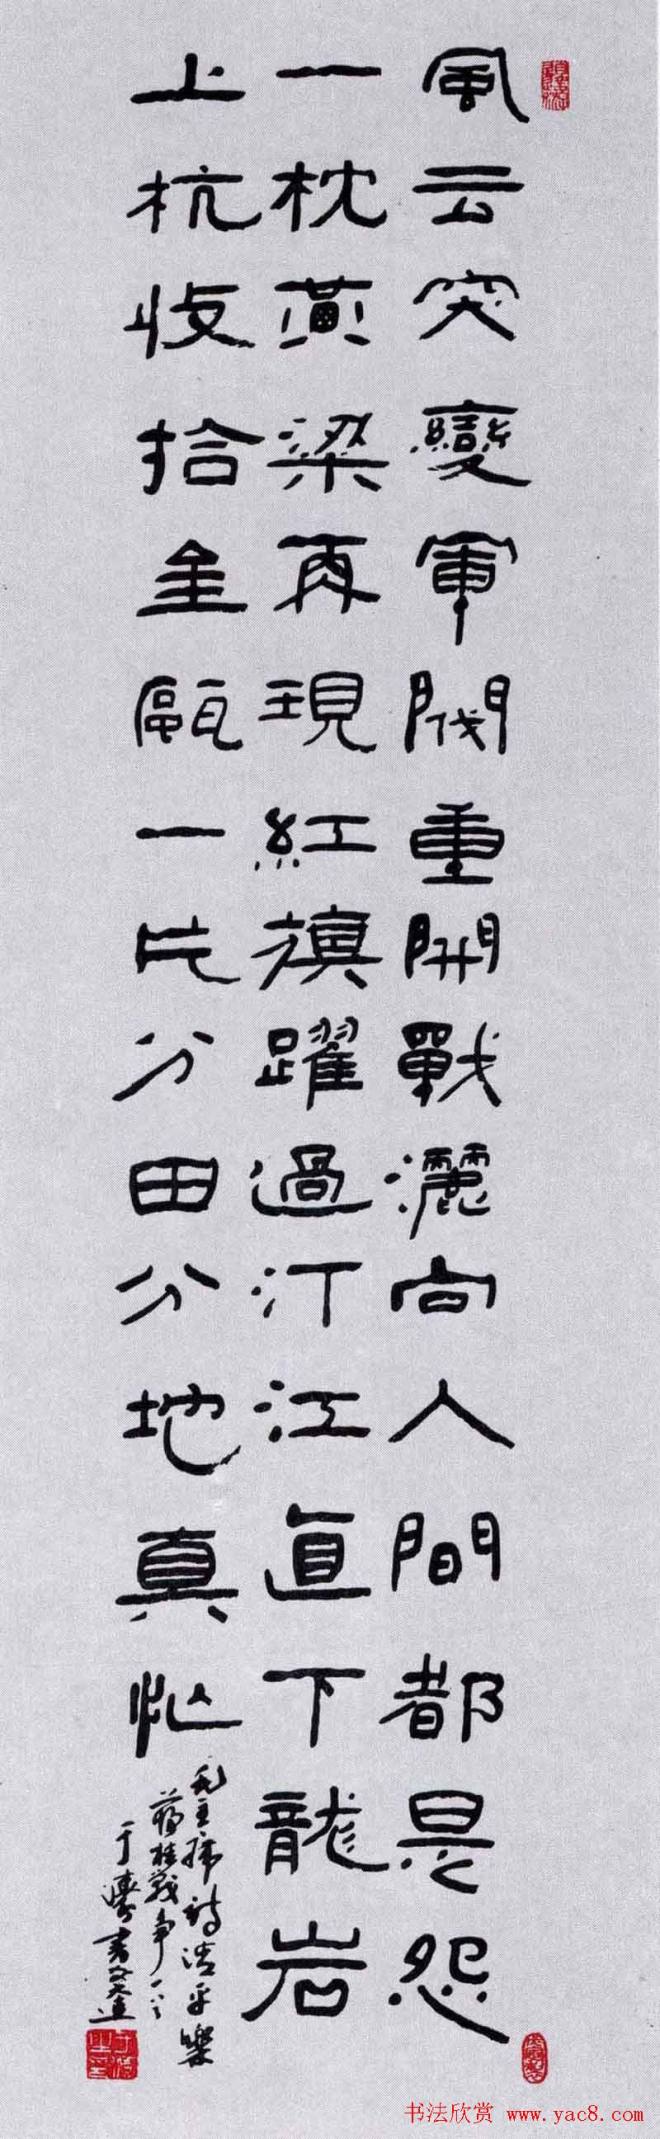 風云突變軍閥重開戰灑向人間都是怨
一枕黃梁再現紅旗躍過汀江直下龍岩
上杭收拾金甌一片分田分地真忙
毛主席詩清平樂
蔣桂戰争
于 書
书法欣赏 www.yac8.com